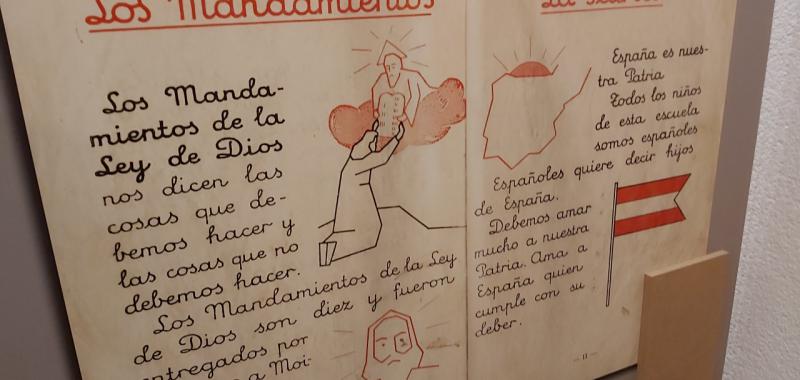 Los Mandamientos
Los Manda-
mientos de la
Ley de Dios
nos dicen las
cosas que de-
bemos hacer y
las cosas que no
debemos hacer.
Los Mandamientos de la Ley
de Dios son diez y fueron
entregados por
a Moi-
España es nues-
tra Patria
Todos los niños
de esta escuela
somos españoles
Españoles quiere decir hijos
de España.
Debemos amar
mucho a nuestra
Patria. Ama a
España quien
cumple con su
deber.
- 11 -